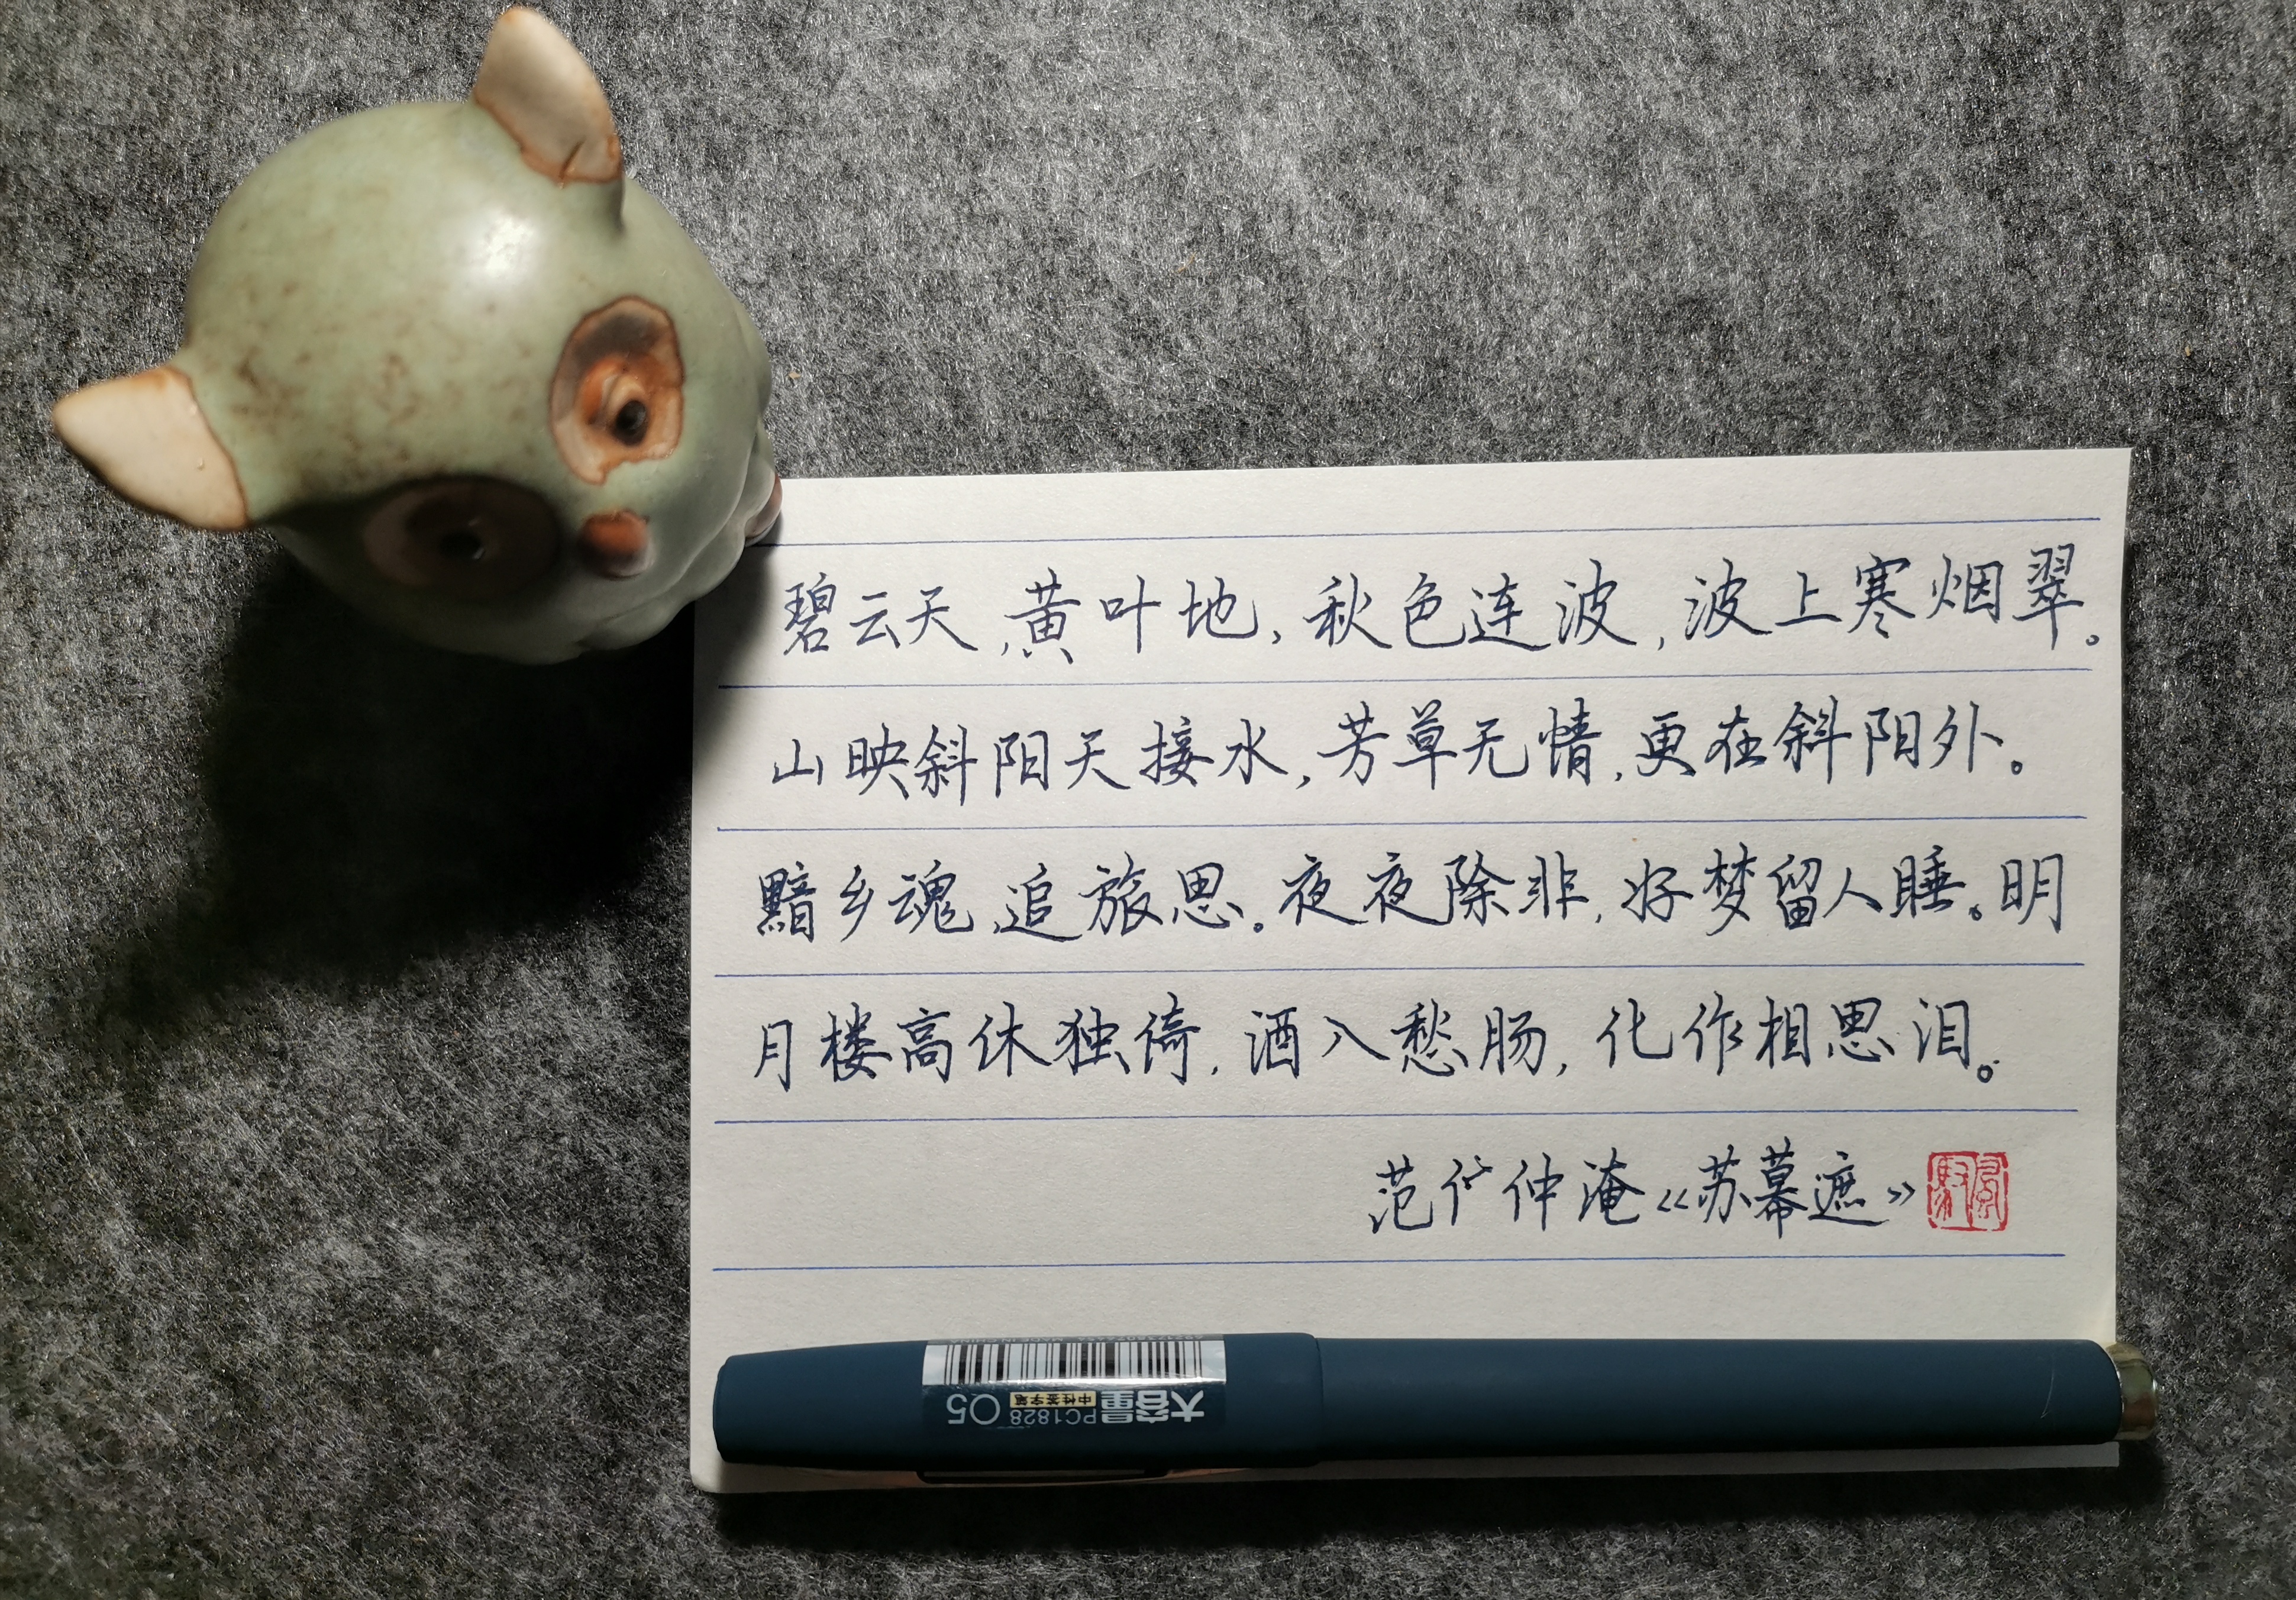 碧云天,黄叶地,秋色连波,波上寒烟翠。
山映斜阳天接水,芳草无情,更在斜阳外。
黯乡魂,追旅思。夜夜除非,好梦留人睡。明
月楼高休独倚,酒入愁肠,化作相思泪。
范仲淹《苏幕遮》
大容量 PC1828 Q5
中性签字笔